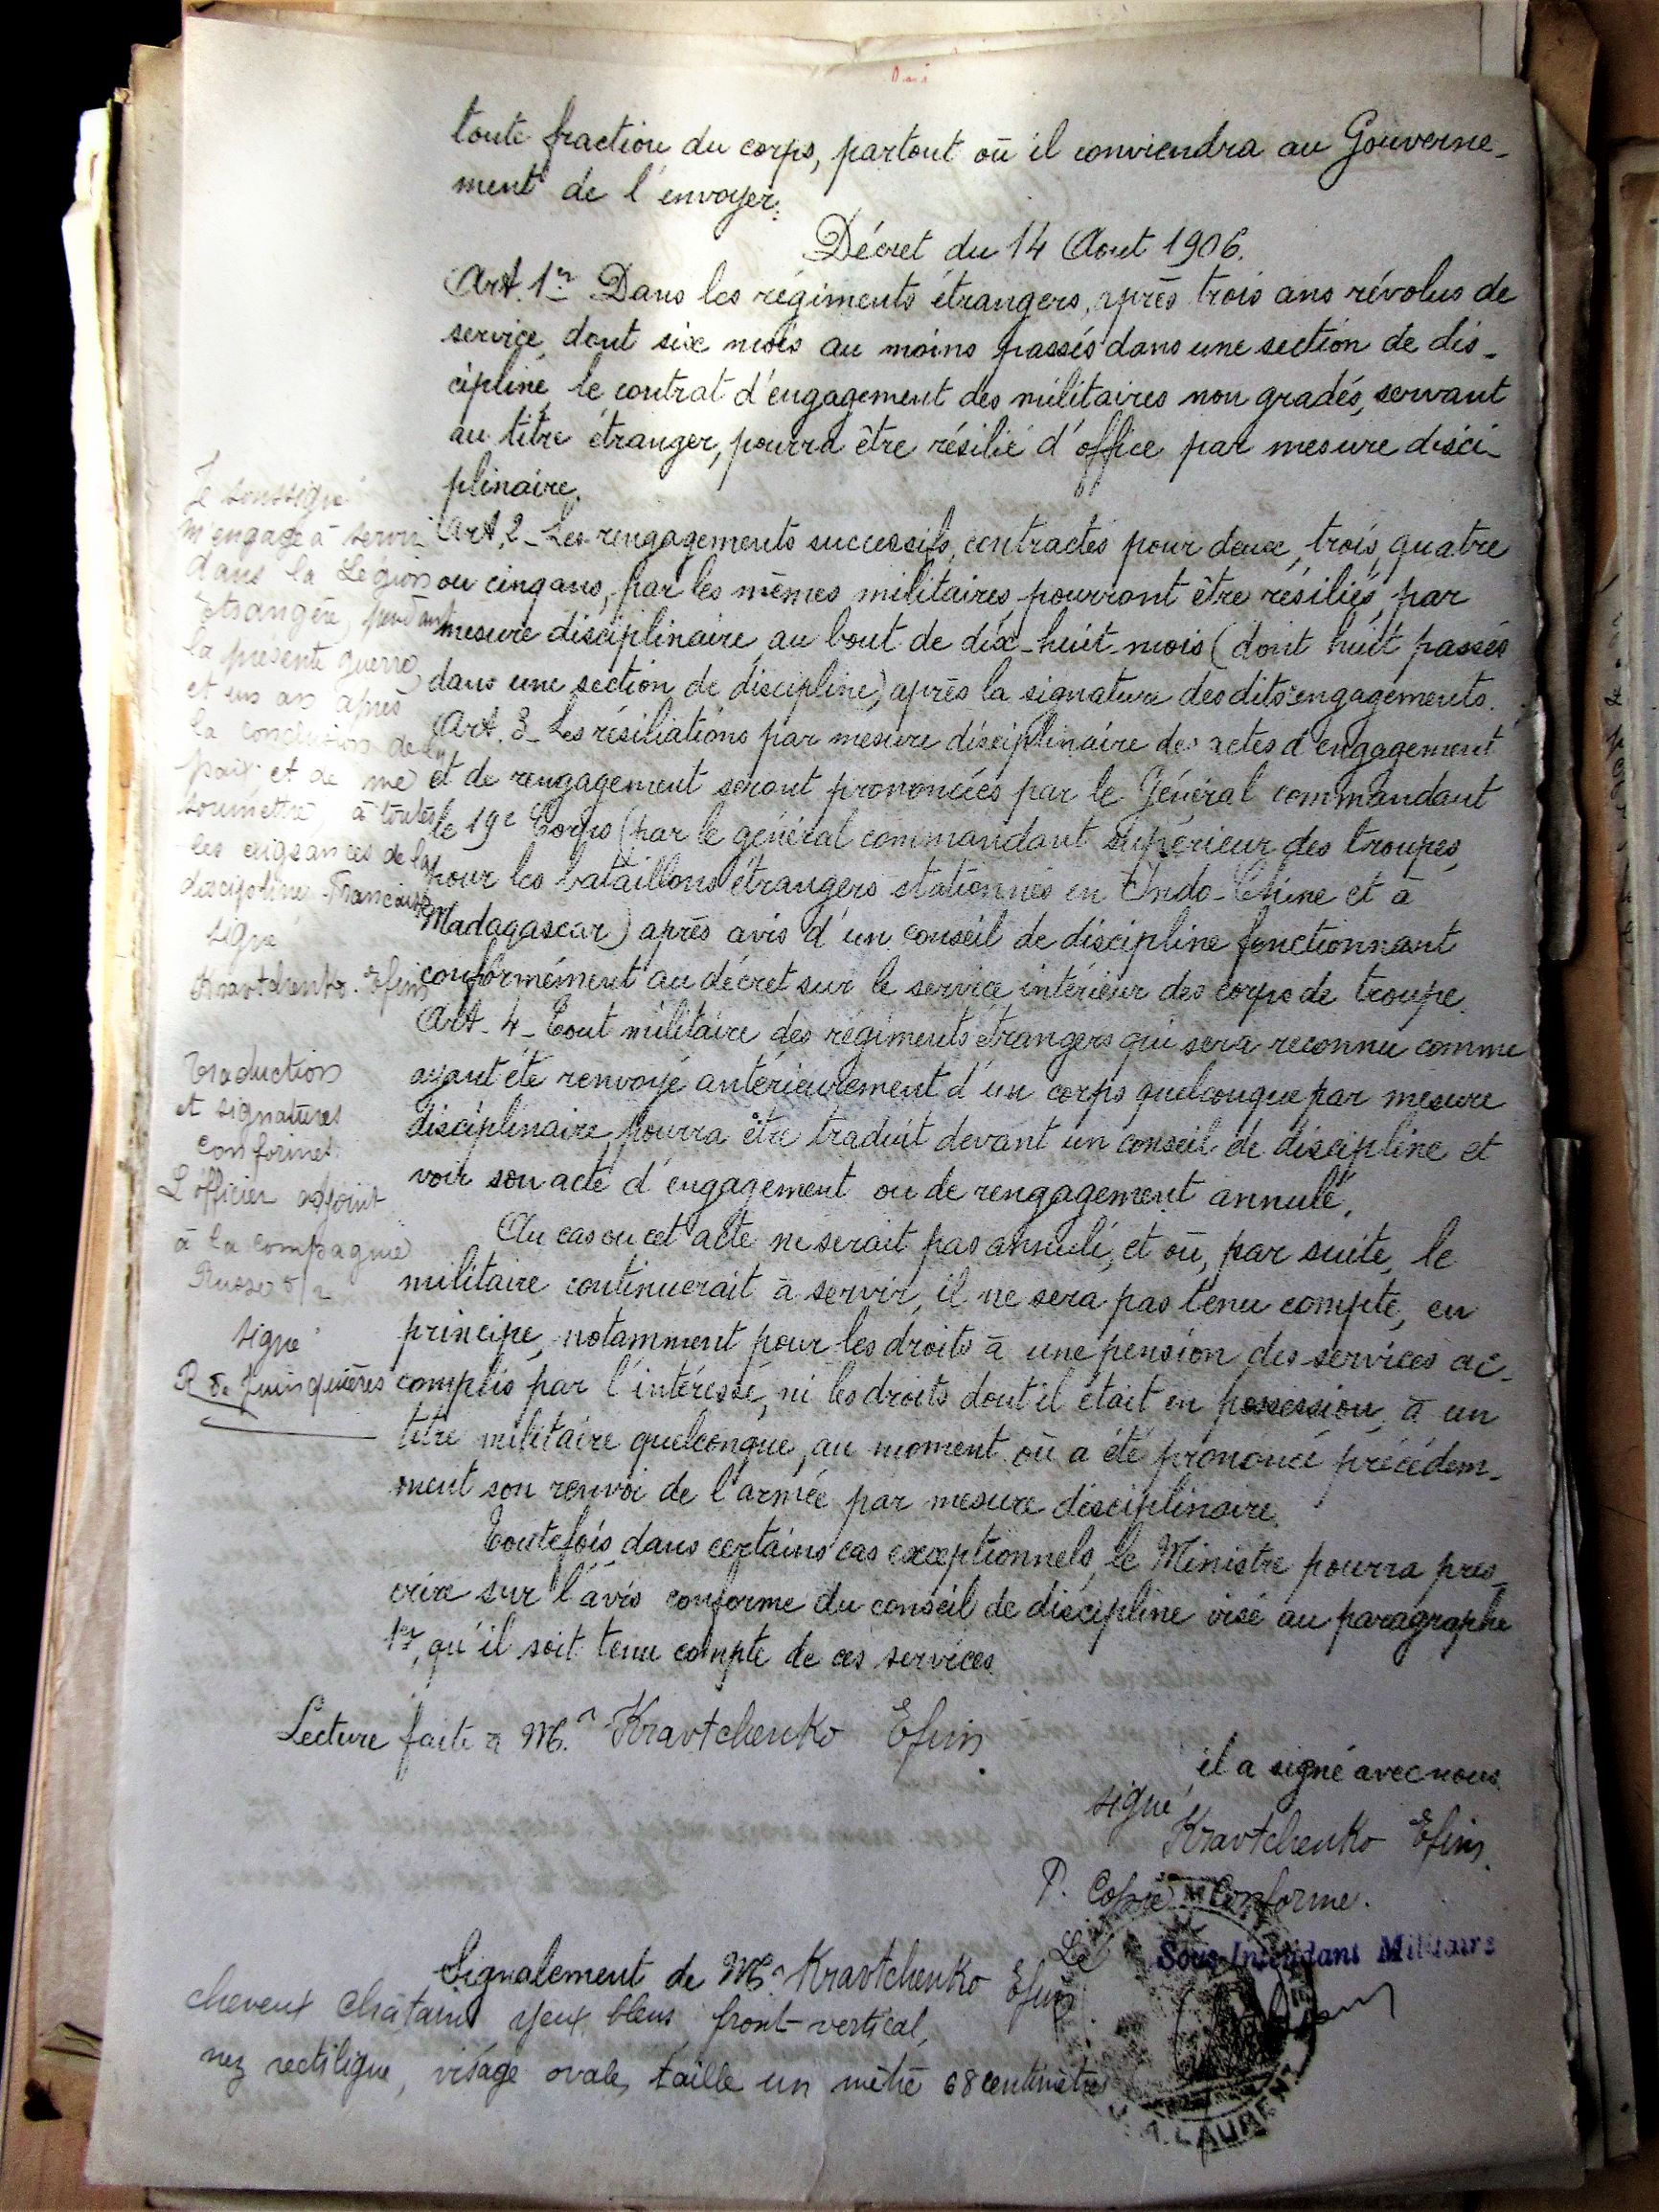 toute fraction du corps, partout où il conviendra au Gouverne-
ment de l'envoyer.
Décret du 14 Aout 1906.
Art. 1er Dans les régiments étrangers, après trois ans révolus de
service, dont six mois au moins passés dans une section de dis-
cipline, le contrat d'engagement des militaires non gradés, servant
au titre étranger, pourra être résilié d'office par mesure disci-
plinaire.
Art. 2 - Les rengagements successifs, contractés pour deux, trois, quatre
ou cinq ans, par les mêmes militaires, pourront être résiliés, par
mesure disciplinaire, au bout de dix-huit mois (dont huit passés
dans une section de discipline) après la signature desdits engagements.
Art. 3 - Les résiliations par mesure disciplinaire des actes d'engagement
et de rengagement seront prononcées par le Général commandant
le 19e Corps (par le général commandant supérieur des troupes,
pour les bataillons étrangers stationnés en Indo-Chine et à
Madagascar) après avis d'un conseil de discipline fonctionnant
conformément au décret sur le service intérieur des corps de troupe.
Art. 4 - Tout militaire des régiments étrangers qui sera reconnu comme
ayant été renvoyé antérieurement d'un corps quelconque par mesure
disciplinaire, pourra être traduit devant un conseil de discipline et
voir son acte d'engagement ou de rengagement annulé.
Au cas ou cet acte ne serait pas annulé, et où, par suite, le
militaire continuerait à servir, il ne sera pas tenu compte, en
principe, notamment pour les droits à une pension des services ac-
complis par l'intéressé, ni les droits dont il était en possession, à un
titre militaire quelconque, au moment où a été prononcé précédem-
ment son renvoi de l'armée par mesure disciplinaire.
Toutefois dans certains cas exceptionnels, le Ministre pourra pres-
crire sur l'avis conforme du conseil de discipline visé au paragraphe
1er, qu'il soit tenu compte de ces services.
Je soussigné
m'engage à servir
dans la Légion
étrangère, pendant
la présente guerre,
et un an après
la conclusion de la
paix et de me
soumettre, à toutes
les exigeances de la
discipline Française
signé
Kravtchenko Efim
Traduction
et signatures
conformes
L'officier adjoint
à la compagnie
Russe
signé
R de Juinquières
Lecture faite à Mr Kravtchenko Efim.
il a signé avec nous
signé
Kravtchenko Efim.
P. Copie Conforme.
Le Sous-Intendant Militaire
Signalement de Mr Kravtchenko Efim
cheveux châtains yeux bleus front vertical,
nez rectiligne, visage ovale, taille un mètre 68 centimètres
LAURENT